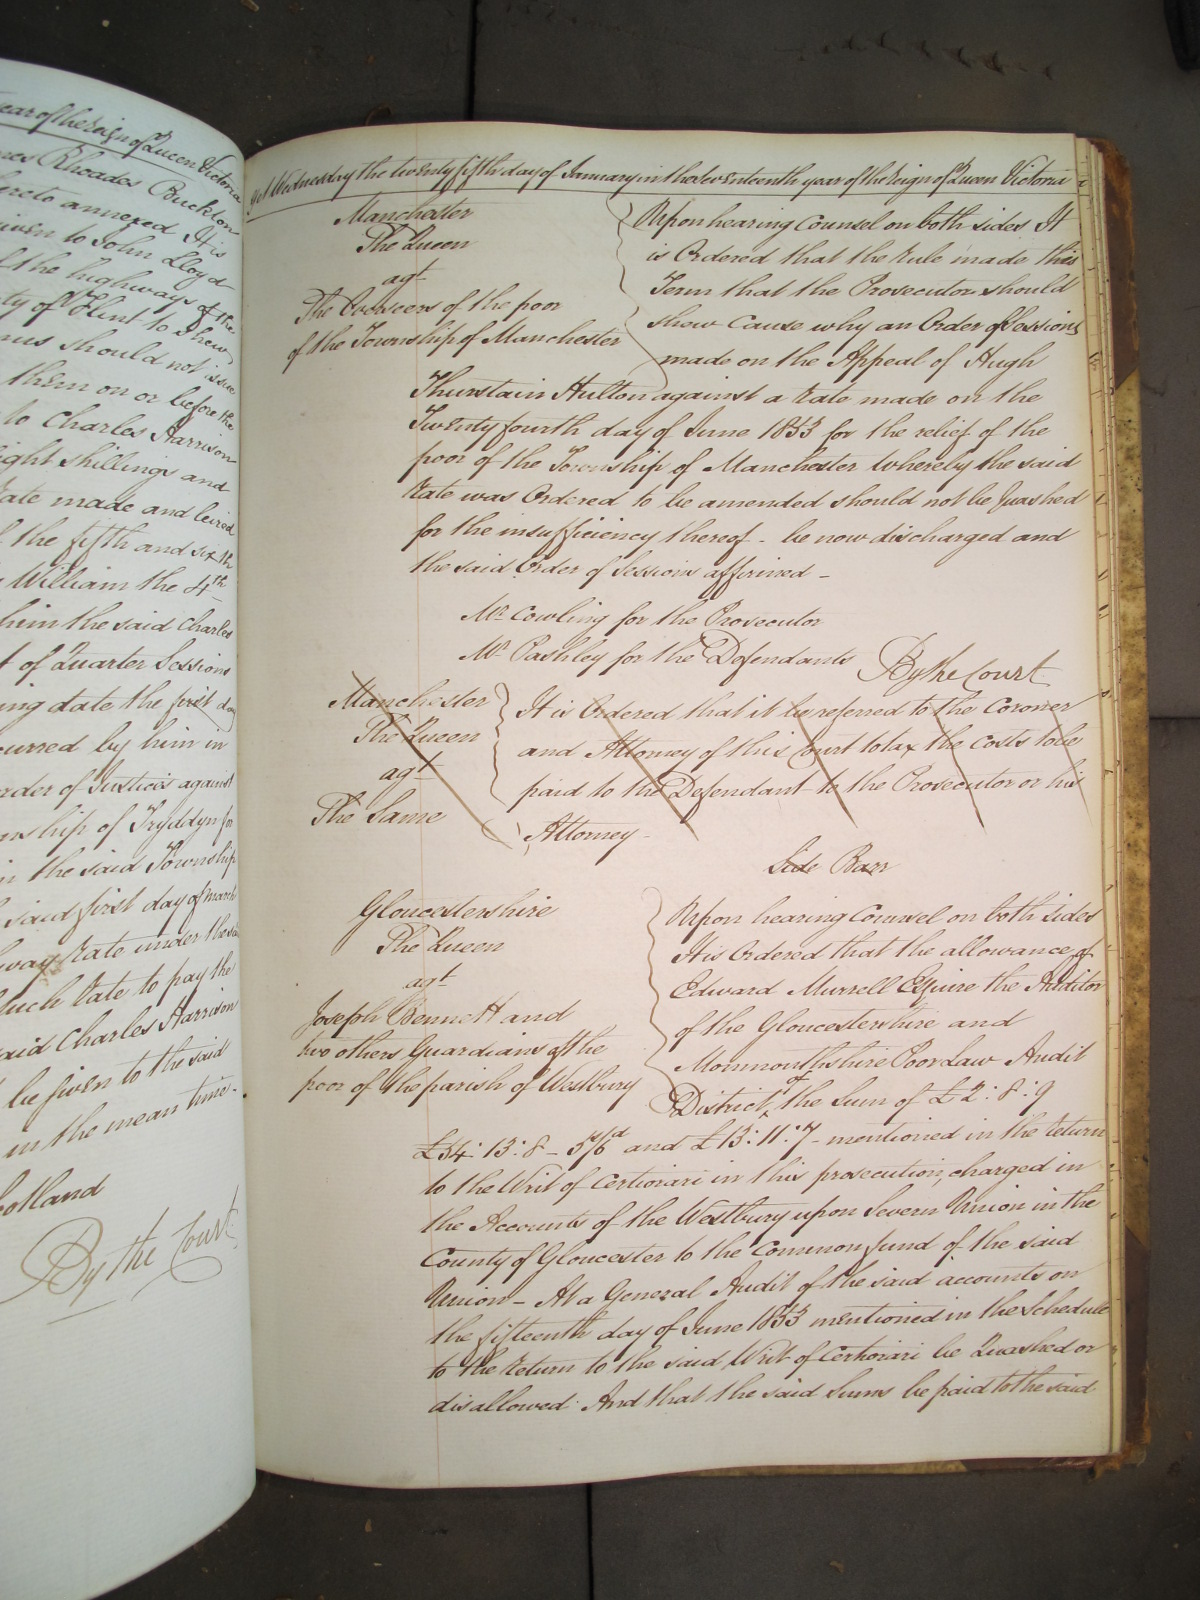 year of the reign of Queen Victoria
Rhoades Buckton
hereto annexed It is
given to John Lloyd
of the highways of the
of Flint to shew
should not issue
them on or before the
to Charles Harrison
eight shillings and
rate made and levied
the fifth and sixth
William the 4th
him the said Charles
of Quarter Sessions
date the first day
by him in
order of Justices against
Township of Tryddyn for
in the said Township
said first day of March
rate under the said
such rate to pay the
said Charles Harrison
be given to the said
in the mean time.
By the Court
Wednesday the twenty fifth day of January in the seventeenth year of the Reign of Queen Victoria
Manchester
The Queen
agt
The Overseers of the poor
of the Township of Manchester
Upon hearing Counsel on both sides It
is Ordered that the rule made this
Term that the Prosecutor should
shew cause why an Order of Sessions
made on the Appeal of Hugh
Thurstain Hulton against a rate made on the
Twenty fourth day of June 1853 for the relief of the
poor of the Township of Manchester whereby the said
rate was Ordered to be amended should not be Quashed
for the insufficiency thereof - be now discharged and
the said Order of Sessions affirmed -
Mr Cowling for the Prosecutor
Mr Pashley for the Defendants By the Court
Manchester
The Queen
agt
The Same
It is Ordered that it be referred to the Coroner
and Attorney of this Court to tax the costs to be
paid to the Defendant to the Prosecutor or his
Attorney -
Side Barr
Gloucestershire
The Queen
agt
Joseph Bennett and
two others Guardians of the
poor of the parish of Westbury
Upon hearing Counsel on both sides
It is Ordered that the allowance of
Edward Murrell Esquire the Auditor
of the Gloucestershire and
Monmouthshire Poor Law Audit
District, of the Sum of £2:8:9
£34:13:8 - 5s/6d and £13:11:7 - mentioned in the return
to the Writ of Certiorari in this prosecution, charged in
the Accounts of the Westbury upon Severn Union in the
County of Gloucester to the Common fund of the said
Union - At a General Audit of the said accounts on
the fifteenth day of June 1853 mentioned in the Schedule
to the return to the said Writ of Certiorari be Quashed or
disallowed. And that the said Sums be paid to the said